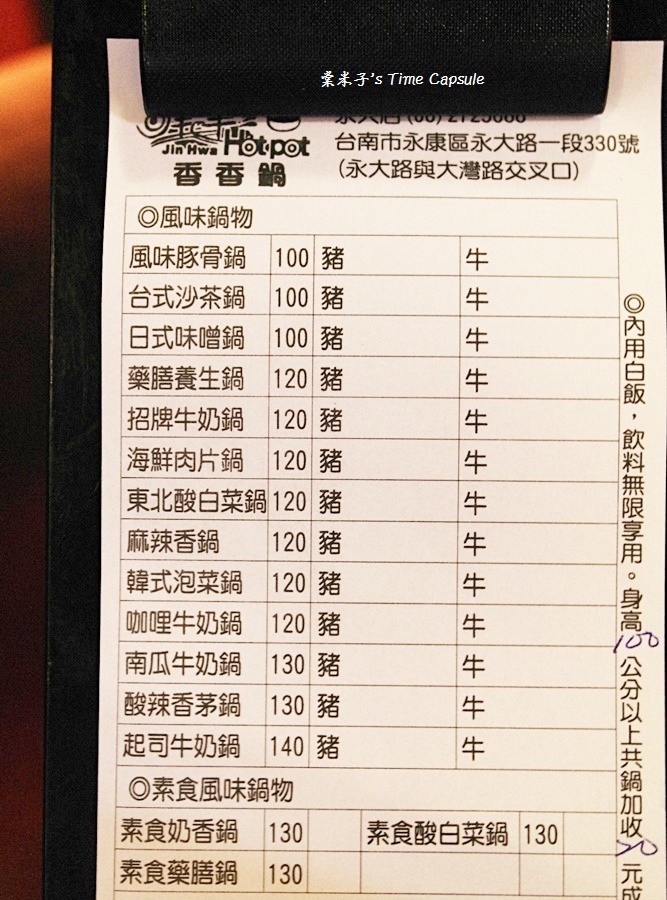 棠米子's Time Capsule
Jin Hwa Hot pot
香香鍋
永大店 (06) 2725688
台南市永康區永大路一段330號
(永大路與大灣路交叉口)
◎風味鍋物
風味豚骨鍋 100 豬 牛
台式沙茶鍋 100 豬 牛
日式味噌鍋 100 豬 牛
藥膳養生鍋 120 豬 牛
招牌牛奶鍋 120 豬 牛
海鮮肉片鍋 120 豬 牛
東北酸白菜鍋 120 豬 牛
麻辣香鍋 120 豬 牛
韓式泡菜鍋 120 豬 牛
咖哩牛奶鍋 120 豬 牛
南瓜牛奶鍋 130 豬 牛
酸辣香茅鍋 130 豬 牛
起司牛奶鍋 140 豬 牛
◎素食風味鍋物
素食奶香鍋 130 素食酸白菜鍋 130
素食藥膳鍋 130
◎內用白飯，飲料無限享用。身高100公分以上共鍋加收20元成